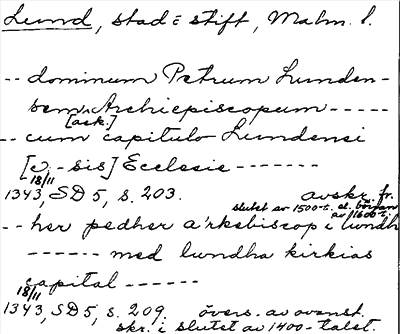 Lund, stad i stift, Malm. l.
-- dominum Petrum Lunden-
sem Archiepiscopum -----
[ärk.]
-- cum capitulo Lundensi
[o: -sis] Ecclesie -------
18/11
1343, SD 5, s. 203. avskr. fr.
slutet av 1500-t. el. början
av 1600-t.
-- her pedher ärkebiscop i lundh
------ med lundha kirkias
capital ------
18/11
1343, SD 5, s. 209. övers. av ovanst.
skr. i slutet av 1400-talet.